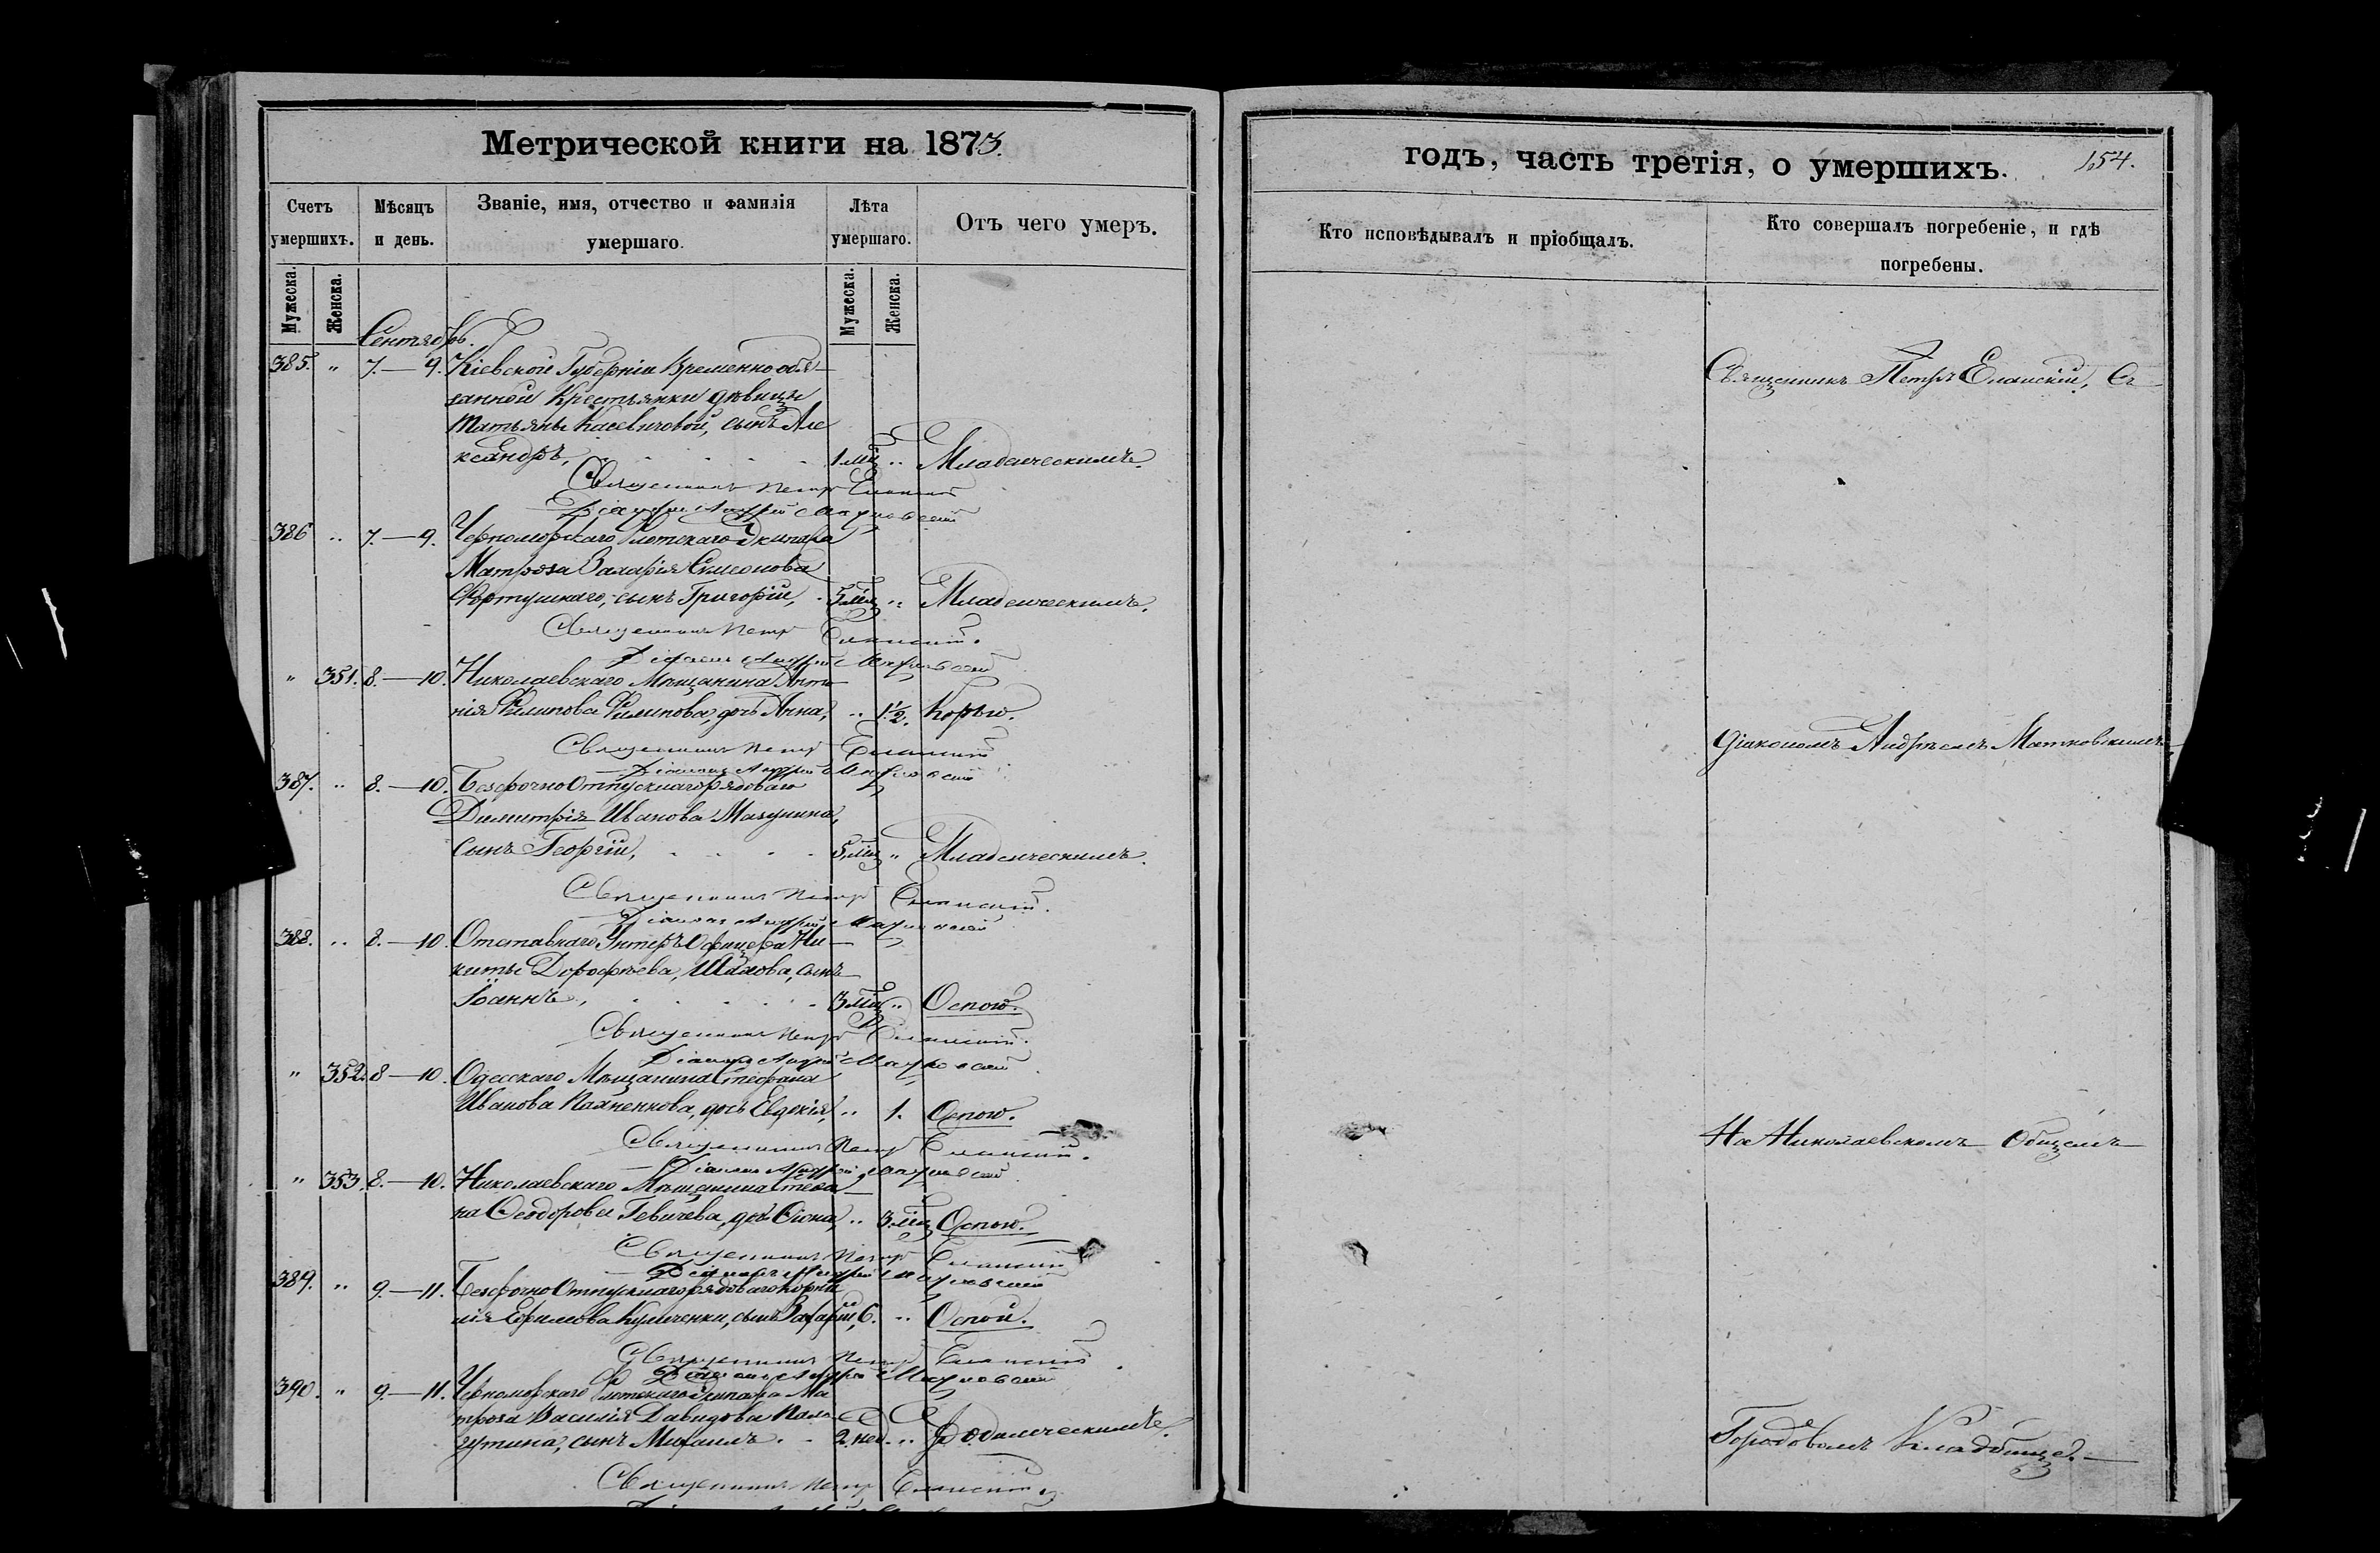 Метрической книги на 1873.
Счетъ умершихъ.
Мѣсяцъ и день.
Званіе, имя, отчество и фамилія умершаго.
Лѣта умершаго.
Отъ чего умеръ.
Мужеска.
Женска.
Мужеска.
Женска.
Сентябрь.
385. " 7.—9. Кіевской Губерніи Временно обя-
занной Крестьянки дѣвицы
Татьяны Касевичовой, сынъ Але
ксандръ, 1 мѣц " Младенческимъ.
Священникъ Петръ Еланскій
Діаконъ Андрей Матковскій
386 " 7.—9. Черноморскаго Флотскаго Экипажа
Матроза Захарія Симеонова
сынъ Григорій, 5 мѣц " Младенческимъ.
Священникъ Петръ Еланскій.
Діаконъ Андрей Матковскій
" 351. 8.—10. Николаевскаго Мѣщанина Анто
нія Филипова Филипова, дочь Анна, " 1½. Корью.
Священникъ Петръ Еланскій
Діаконъ Андрей Матковскій
387. " 8.—10. Безсрочно Отпускнаго рядоваго
Димитрія Иванова
Сынъ Георгій, 5 мѣц " Младенческимъ.
Священникъ Петръ Еланскій.
Діаконъ Андрей Матковскій
388. " 8.—10. Отставнаго Унтеръ Офицера Ни-
киты Дорофѣева, сынъ
Іоаннъ, 3 мѣц " Оспою.
Священникъ Петръ Еланскій.
Діаконъ Андрей Матковскій
" 352. 8—10. Одесскаго Мѣщанина Стефана
Иванова дочь Евдокія, " 1. Оспою.
Священникъ Петръ Еланскій.
Діаконъ Андрей Матковскій
" 353. 8.—10. Николаевскаго Мѣщанина Стефа
на Ѳеодорова дочь " 3 мѣц Оспою.
Священникъ Петръ Еланскій
Діаконъ Андрей Матковскій
389. " 9.—11. Безсрочно Отпускнаго рядоваго Корни
лія Ефимова Кульченки, сынъ Захарій, 6. " Оспой.
Священникъ Петръ Еланскій.
Діаконъ Андрей Матковскій
390. " 9.—11. Черноморскаго Флотскаго Экипажа Ма
троза Василія Давидова
сынъ Михаилъ. 2. нед. " Родимческимъ.
Священникъ Петръ Еланскій
годъ, часть третія, о умершихъ. 154.
Кто исповѣдывалъ и пріобщалъ.
Кто совершалъ погребеніе, и гдѣ погребены.
Священникъ Петръ Еланскій, Съ
Діакономъ Андреемъ Матковскимъ
На Николаевскомъ Общемъ
Городовомъ Кладбищѣ.